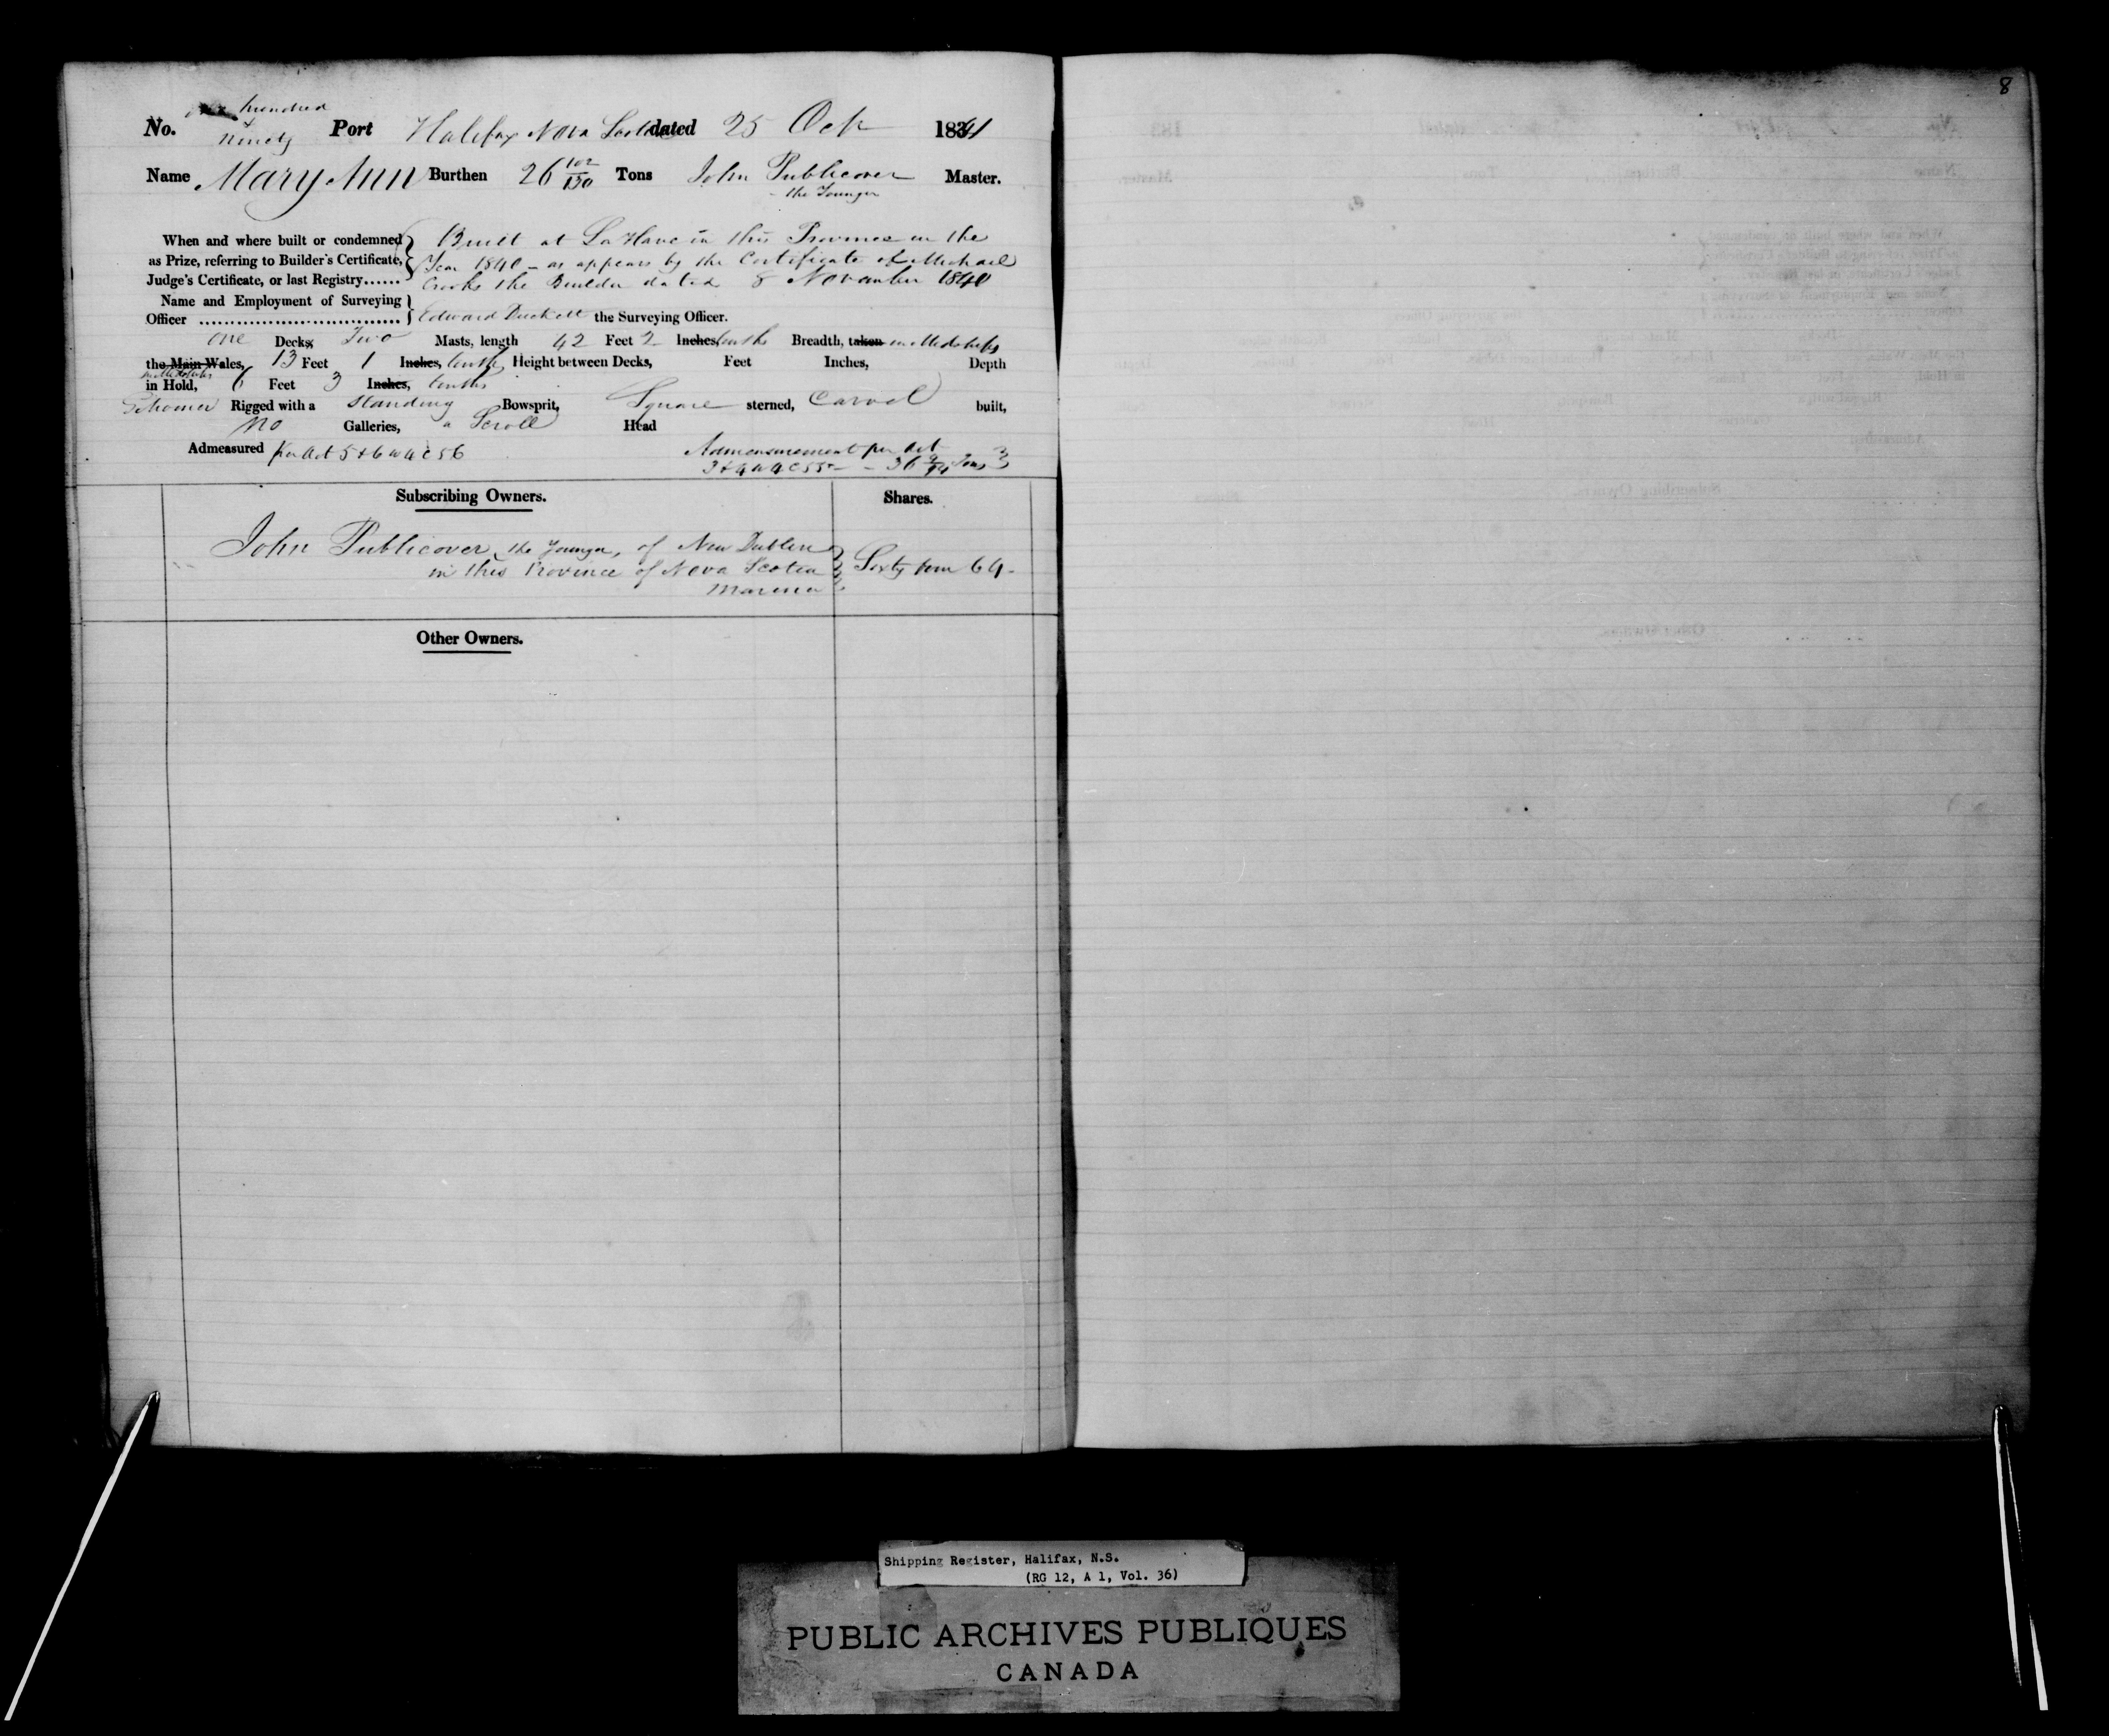 8
hundred
No. & Port Halifax Nova Scotia dated 25 Oct 1841
Ninety
Name Mary Ann Burthen 26 102/130 Tons John Publicover Master.
the Younger
When and where built or condemned Built at La Have in this Province in the
as Prize, referring to Builder's Certificate, Year 1840 – as appears by the Certificate of Michael
Judge's Certificate, or last Registry...... Crooks the Builder dated 8 November 1840
Name and Employment of Surveying
Officer Edward Duckett the Surveying Officer.
One Decks, Two Masts, length 42 Feet 2 Inches, tenths Breadth, taken in Midships
the Main Wales, 13 Feet 1 Inches, tenths, Height between Decks, Feet Inches, Depth
Midships
in Hold, 6 Feet 3 Inches, tenths
Schooner Rigged with a Standing Bowsprit, Square sterned, Carvel built,
No Galleries, a Scroll Head
Admeasured per Act 5 & 6 W 4 C 56 Admeasurement per Act
3 & 4 W 4 C 55 – 36 9/94 Tons
Subscribing Owners. Shares.
John Publicover the Younger, of New Dublin
in this Province of Nova Scotia Sixty four 64 –
Mariner
Other Owners.
Shipping Register, Halifax, N.S.
(RG 12, A 1, Vol. 36)
PUBLIC ARCHIVES PUBLIQUES
CANADA